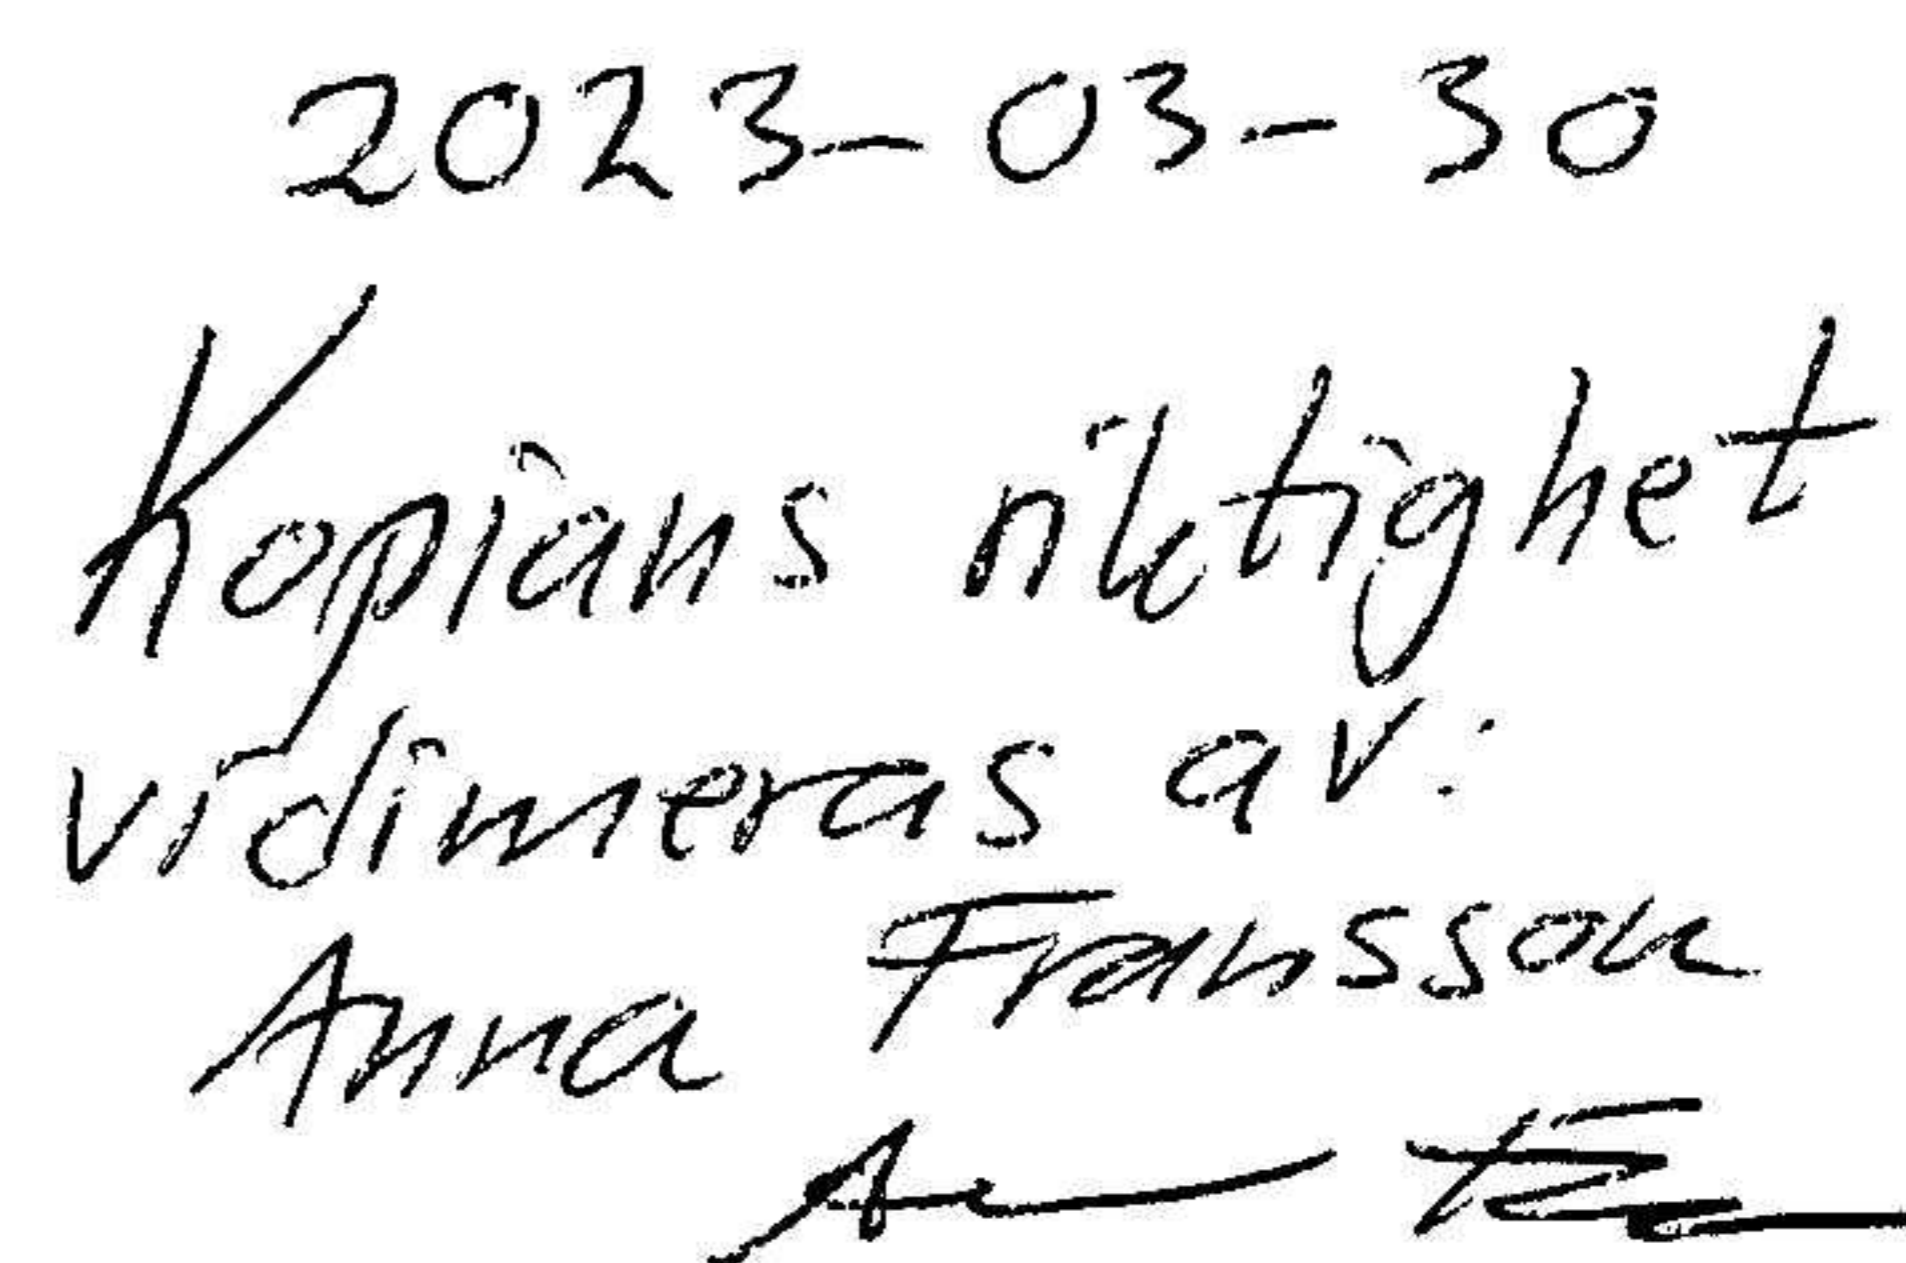 2023-03-30
Kopians riktighet
vidimeras av:
Anna Fransson